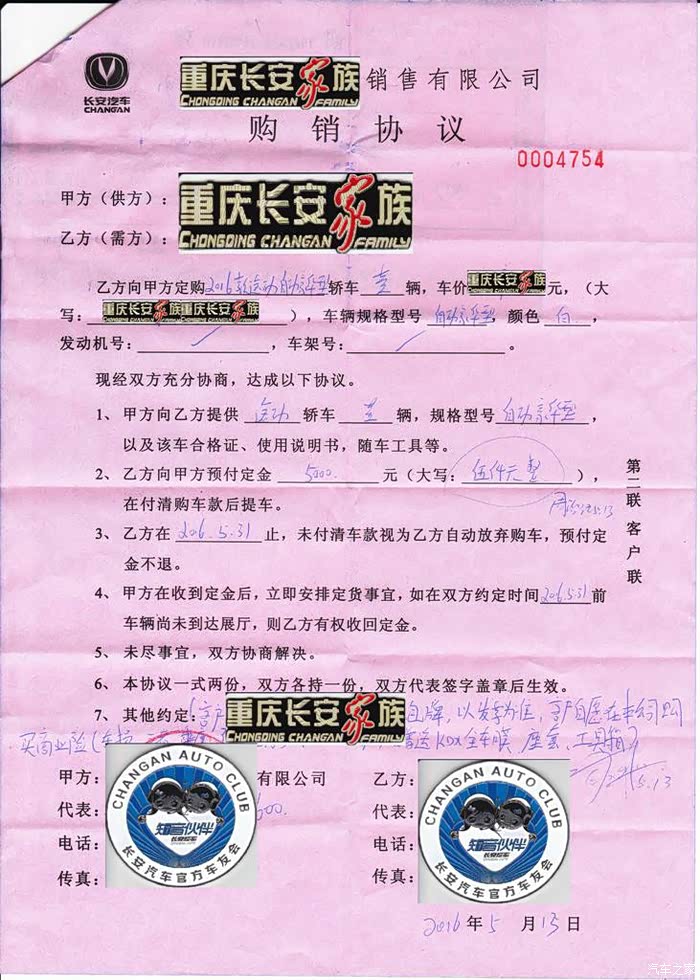 长安汽车
CHANGAN
重庆长安家族 销售有限公司
CHONGQING CHANGAN FAMILY
购销协议
0004754
甲方（供方）：
重庆长安家族
CHONGQING CHANGAN FAMILY
乙方（需方）：
乙方向甲方定购2016款逸动自动豪华型轿车 壹 辆，车价 重庆长安家族 元，（大
写： 重庆长安家族 重庆长安家族 ），车辆规格型号 自动豪华型，颜色 白，
发动机号： ，车架号： 。
现经双方充分协商，达成以下协议。
1、甲方向乙方提供 逸动 轿车 壹 辆，规格型号自动豪华型，
以及该车合格证、使用说明书，随车工具等。
2、乙方向甲方预付定金 5000. 元（大写： 伍仟元整 ），
在付清购车款后提车。
3、乙方在 2016.5.31 止，未付清车款视为乙方自动放弃购车，预付定
金不退。
4、甲方在收到定金后，立即安排定货事宜，如在双方约定时间2016.5.31前
车辆尚未到达展厅，则乙方有权收回定金。
5、未尽事宜，双方协商解决。
6、本协议一式两份，双方各持一份，双方代表签字盖章后生效。
7、其他约定： 重庆长安家族 包牌，以发票为准，客户自愿在本公司购
CHONGQING CHANGAN FAMILY
买商业险 送KDX全车膜，座套，工具箱
5.13
第二联 客户联
甲方： 有限公司
代表：
电话：
传真：
CHANGAN AUTO CLUB
知音伙伴
长安汽车
长安汽车官方车友会
乙方：
代表：
电话：
传真：
CHANGAN AUTO CLUB
知音伙伴
长安汽车
长安汽车官方车友会
2016年5月13日
汽车之家